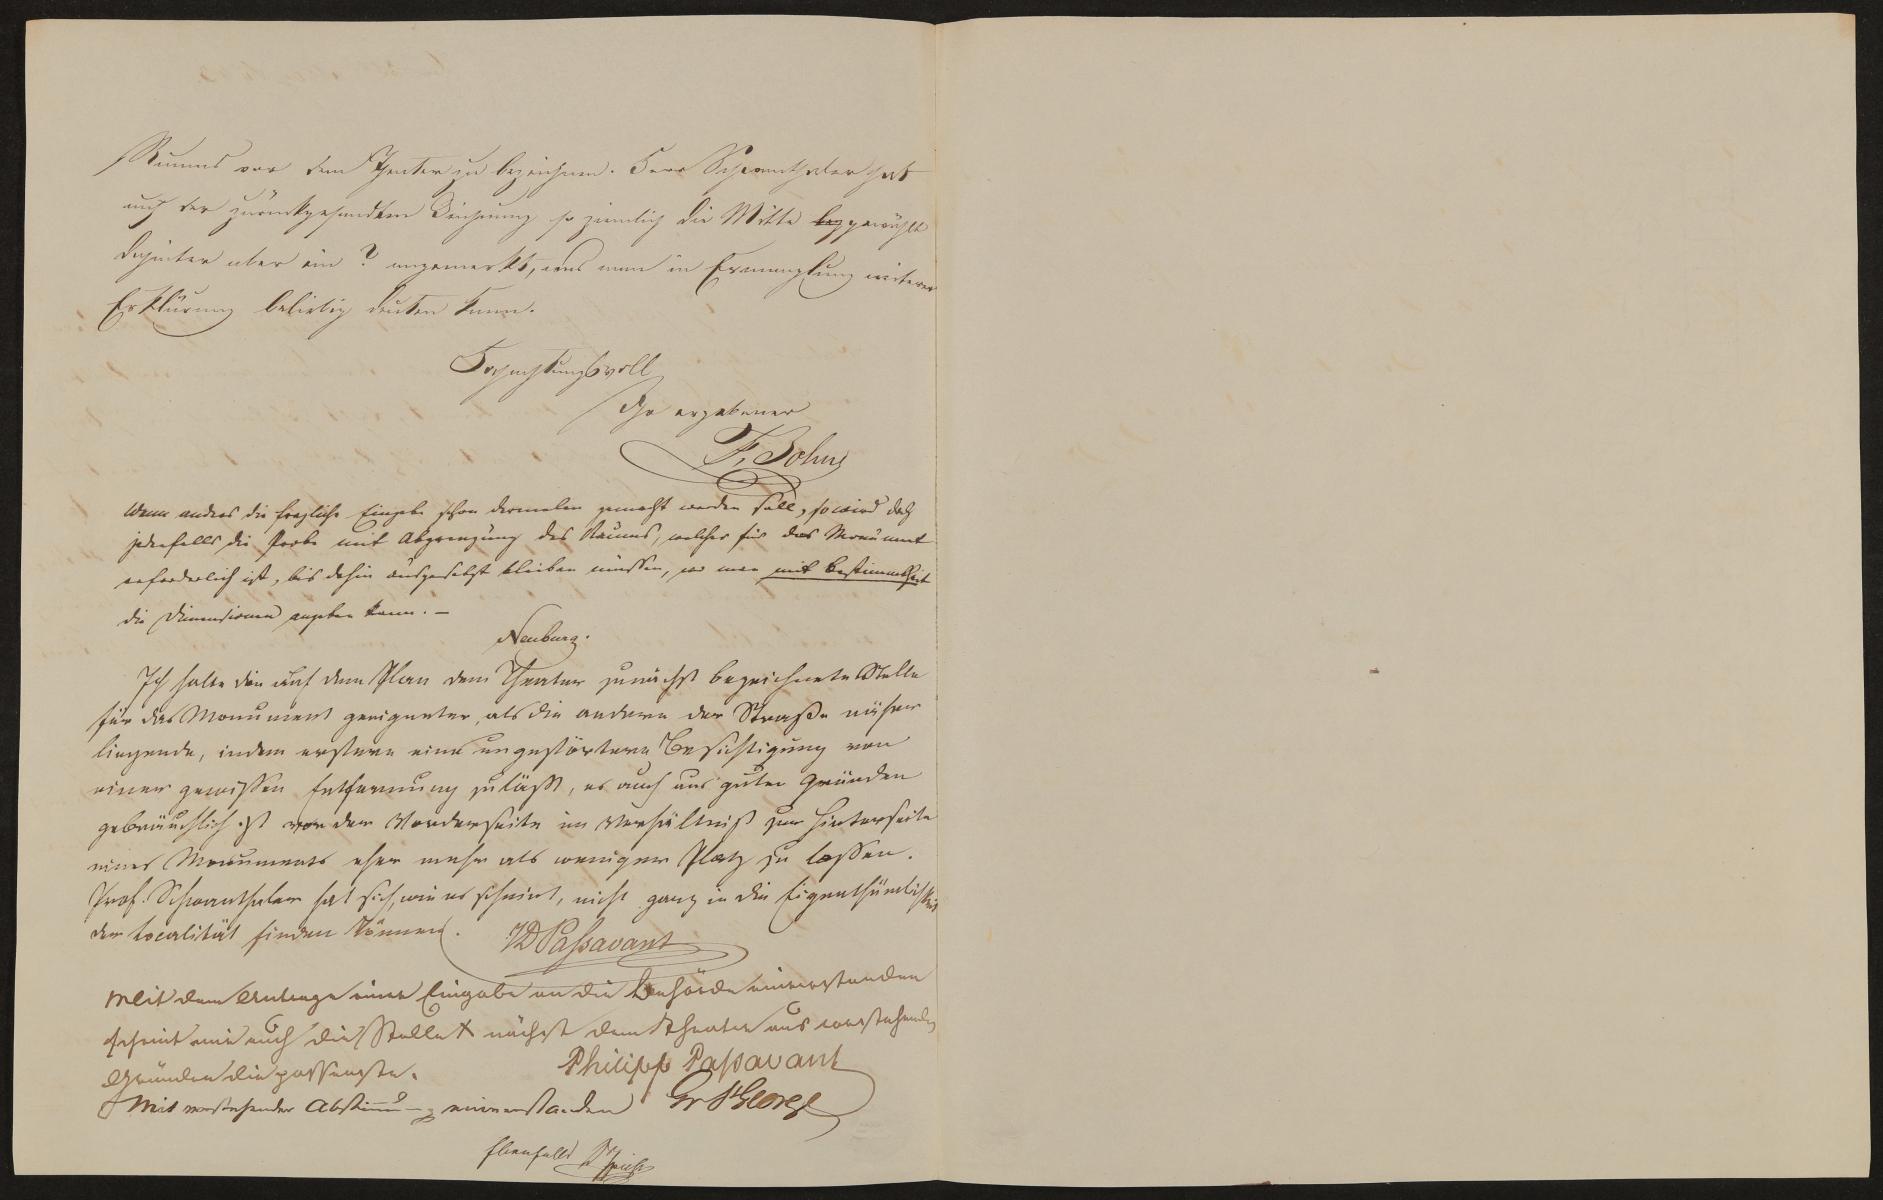 Raums vor dem Theater zu bezeichnen. Herr Schwanthaler hat
auf der zurückgesandten Zeichnung so ziemlich die Mitte gewählt
dahinter aber ein ? angemerkt, was man in Ermanglung weiterer
Erklärung beliebig deuten kann.
Hochachtungsvoll
Ihr ergebener
F. Bohn
Wenn anders die fragliche Eingabe schon dermalen gemacht werden soll, so wird doch
jedenfalls die Probe mit Abgrenzung des Raumes, welcher für das Monument
erforderlich ist, bis dahin ausgesetzt bleiben müssen, wo man mit Bestimmtheit
die Dimensionen angeben kann. —
Neuburg.
Ich halte die auf dem Plan dem Theater zunächst bezeichnete Stelle
für das Monument geeigneter, als die andere der Straße näher
liegende, indem erstere eine ungestörtere Besichtigung von
einer gewissen Entfernung zuläßt, es auch aus guten Gründen
gebräuchlich ist vor der Vorderseite im Verhältniß zur Hinterseite
eines Monuments eher mehr als weniger Platz zu lassen.
Prof. Schwanthaler hat sich, wie es scheint, nicht ganz in die Eigenthümlichkeit
der Localität finden können. JD Passavant
Mit dem Antrage einer Eingabe an die Behörde einverstanden
scheint mir auch die Stelle nächst dem Theater aus vorstehenden
Gründen die passenste. Philipp Passavant
Mit vorstehender Abstimmung einverstanden Gr St George
Ebenfalls